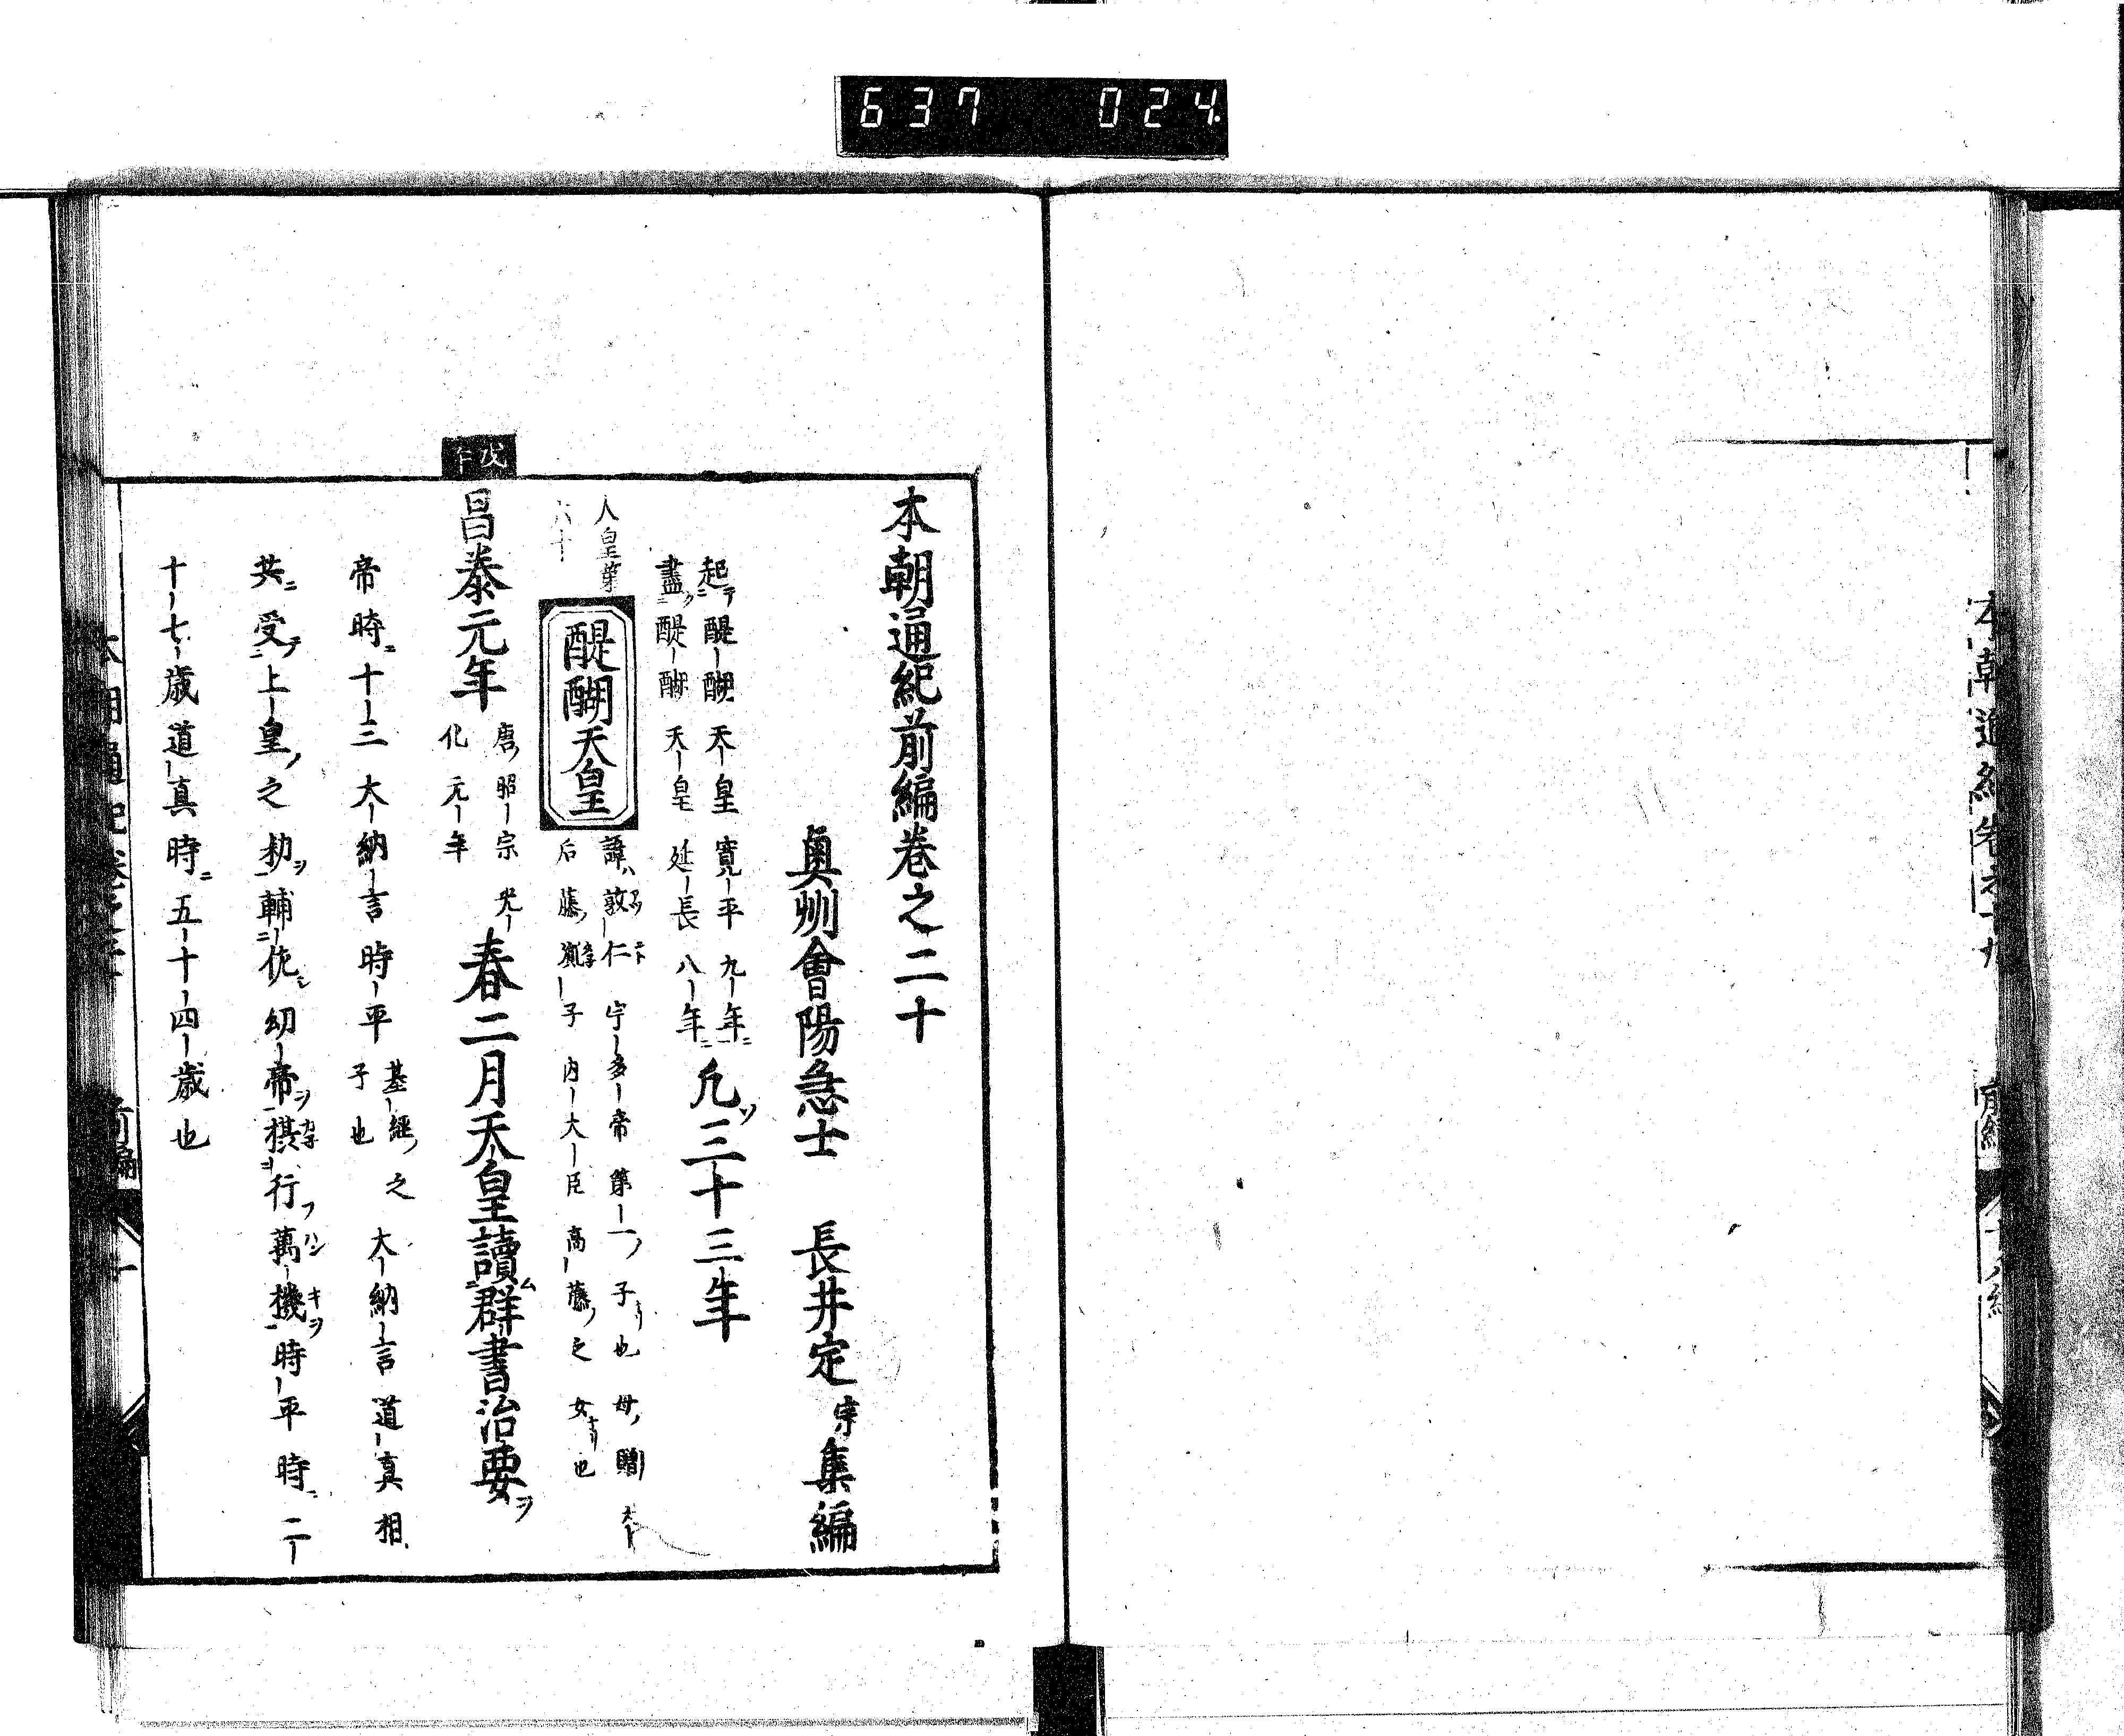 637 024
本朝通紀前編卷之二十
奥州會陽急士 長井定宗集編
起醍醐天皇寛平九年
盡醍醐天皇延長八年
凢三十三年
人皇第
六十
醍醐天皇
諱敦仁宇多帝第一子也母贈太
后藤胤子内大臣高藤之女也
戊午
昌泰元年
唐昭宗光
化元年
春二月天皇讀群書治要
帝時十三大納言時平
基經之
子也
大納言道真相
共受上皇之勅輔佐幼帝棋行萬機時平時二
十七歳道真時五十四歳也